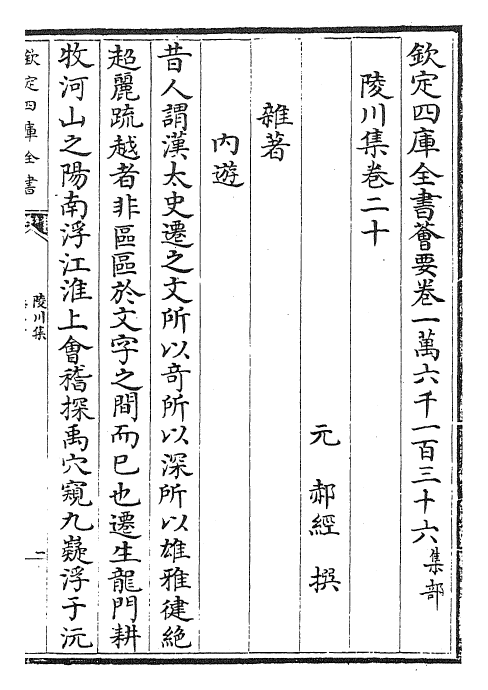 欽定四庫全書薈要卷一萬六千一百三十六集部
陵川集卷二十
元 郝經 撰
雜著
內遊
昔人謂漢太史遷之文所以奇所以深所以雄雅健絶
超麗疏越者非區區於文字之間而已也遷生龍門耕
牧河山之陽南浮江淮上會稽探禹穴窺九嶷浮于沅
欽定四庫全書
陵川集